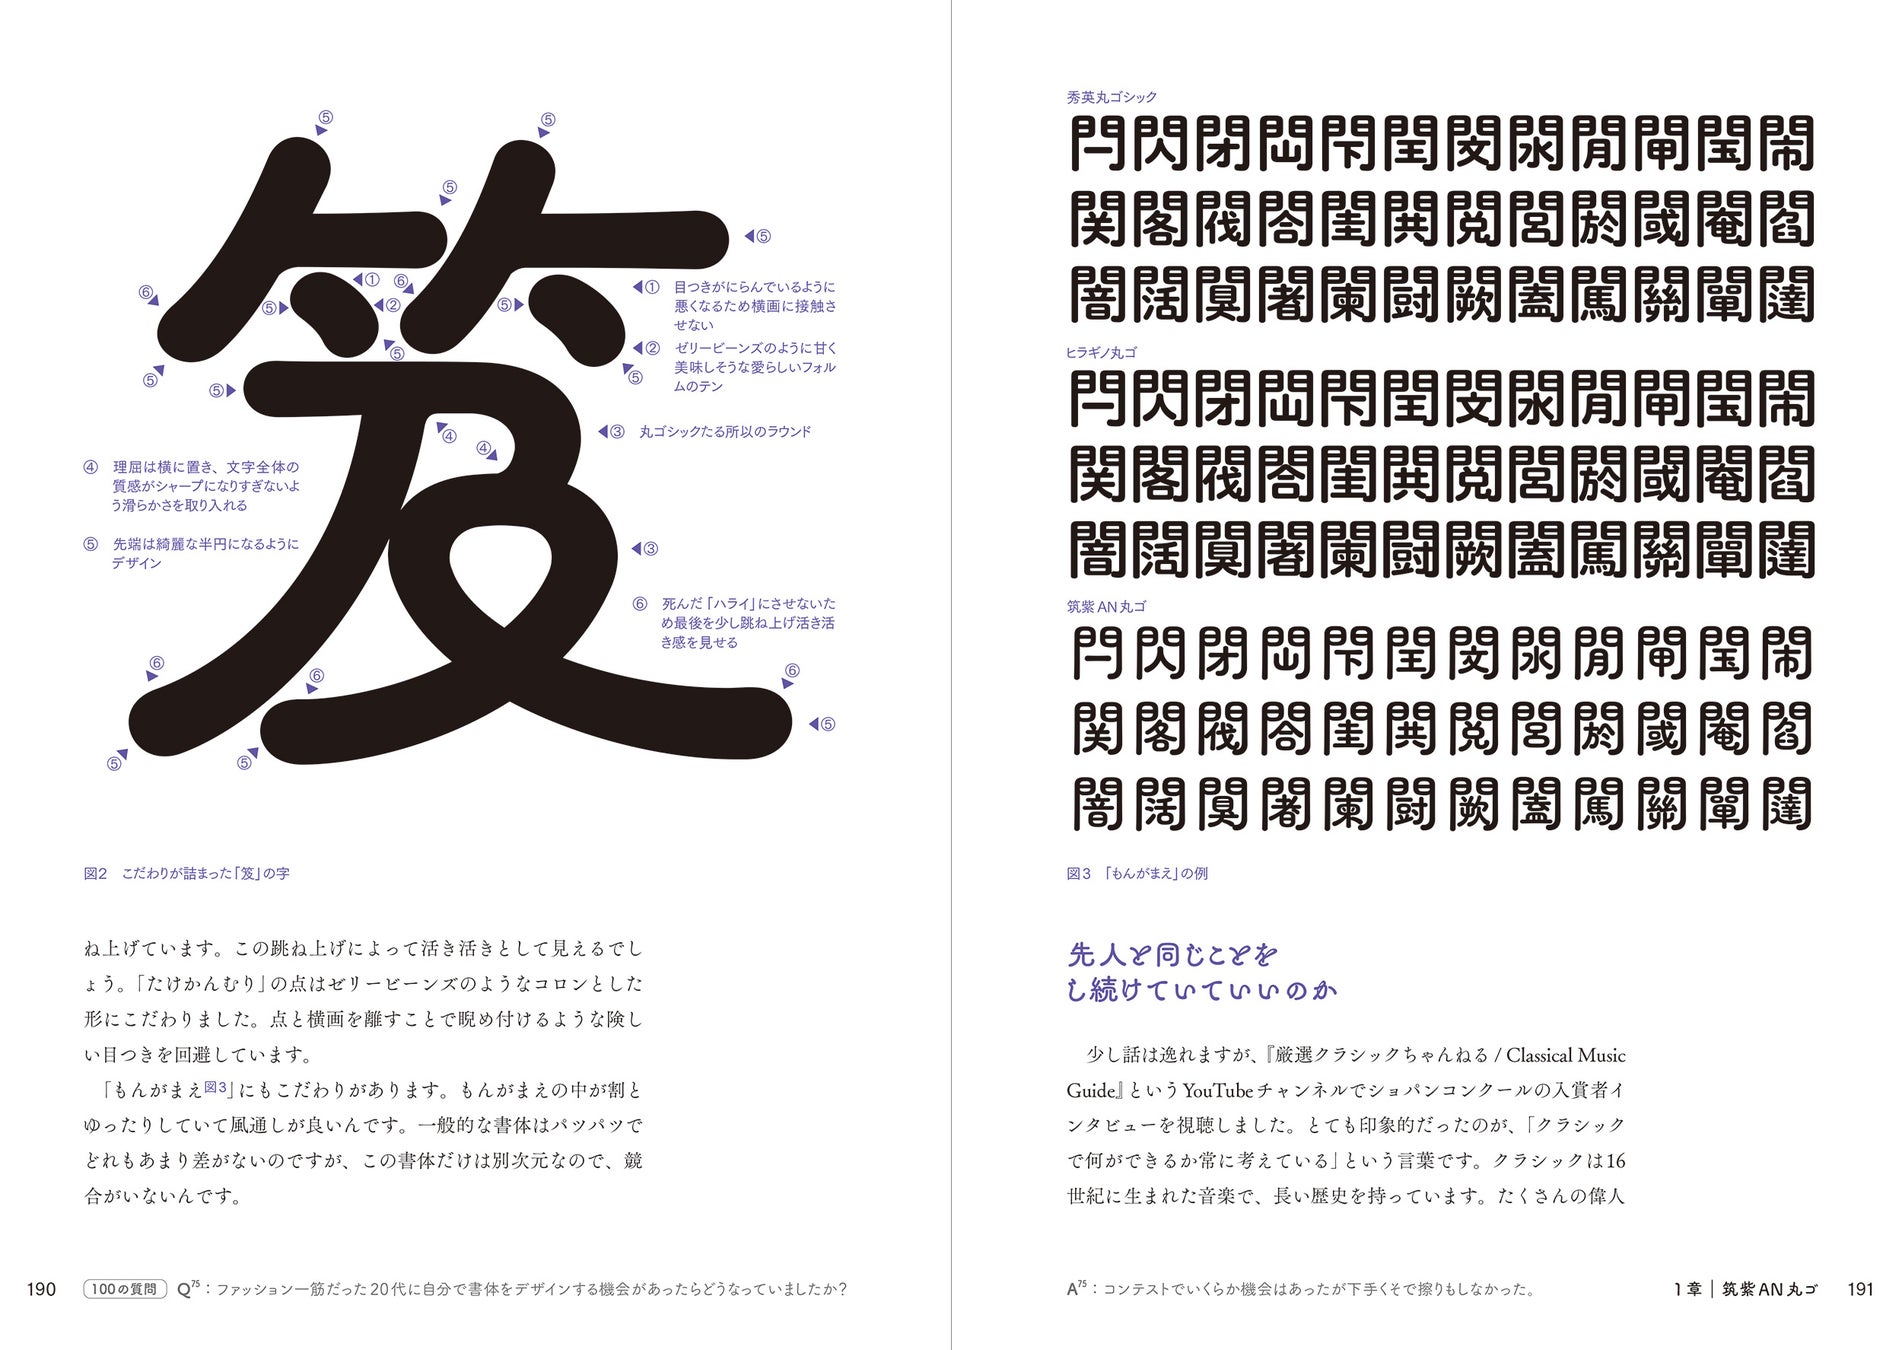 笈
⑤
⑤
⑤
⑤
⑥
⑤
①
②
⑥
⑤
⑤
⑤
⑤
⑤
④
④
③
⑥
⑤
⑥
⑤
⑥
⑤
① 目つきがにらんでいるように
悪くなるため横画に接触さ
せない
② ゼリービーンズのように甘く
美味しそうな愛らしいフォル
ムのテン
③ 丸ゴシックたる所以のラウンド
④ 理屈は横に置き、文字全体の
質感がシャープになりすぎないよ
う滑らかさを取り入れる
⑤ 先端は綺麗な半円になるように
デザイン
⑥ 死んだ「ハライ」にさせないた
め最後を少し跳ね上げ活き活
き感を見せる
図2 こだわりが詰まった「笈」の字
ね上げています。この跳ね上げによって活き活きとして見えるでし
ょう。「たけかんむり」の点はゼリービーンズのようなコロンとした
形にこだわりました。点と横画を離すことで睨め付けるような険し
い目つきを回避しています。
「もんがまえ図3」にもこだわりがあります。もんがまえの中が割と
ゆったりしていて風通しが良いんです。一般的な書体はパツパツで
どれもあまり差がないのですが、この書体だけは別次元なので、競
合がいないんです。
190 100の質問 Q75：ファッション一筋だった20代に自分で書体をデザインする機会があったらどうなっていましたか？
秀英丸ゴシック
閂閃閉閊閇閏閔閖閒閘閠閙
関閣閥閤閨閧閲閭閼閾閹閻
闇闊闃闍闌闘闕闔闖關闡闥
ヒラギノ丸ゴ
閂閃閉閊閇閏閔閖閒閘閠閙
関閣閥閤閨閧閲閭閼閾閹閻
闇闊闃闍闌闘闕闔闖關闡闥
筑紫AN丸ゴ
閂閃閉閊閇閏閔閖閒閘閠閙
関閣閥閤閨閧閲閭閼閾閹閻
闇闊闃闍闌闘闕闔闖關闡闥
図3 「もんがまえ」の例
先人と同じことを
し続けていていいのか
少し話は逸れますが、『厳選クラシックちゃんねる / Classical Music
Guide』というYouTubeチャンネルでショパンコンクールの入賞者イ
ンタビューを視聴しました。とても印象的だったのが、「クラシック
で何ができるか常に考えている」という言葉です。クラシックは16
世紀に生まれた音楽で、長い歴史を持っています。たくさんの偉人
A75：コンテストでいくらか機会はあったが下手くそで擦りもしなかった。
1章｜筑紫AN丸ゴ 191